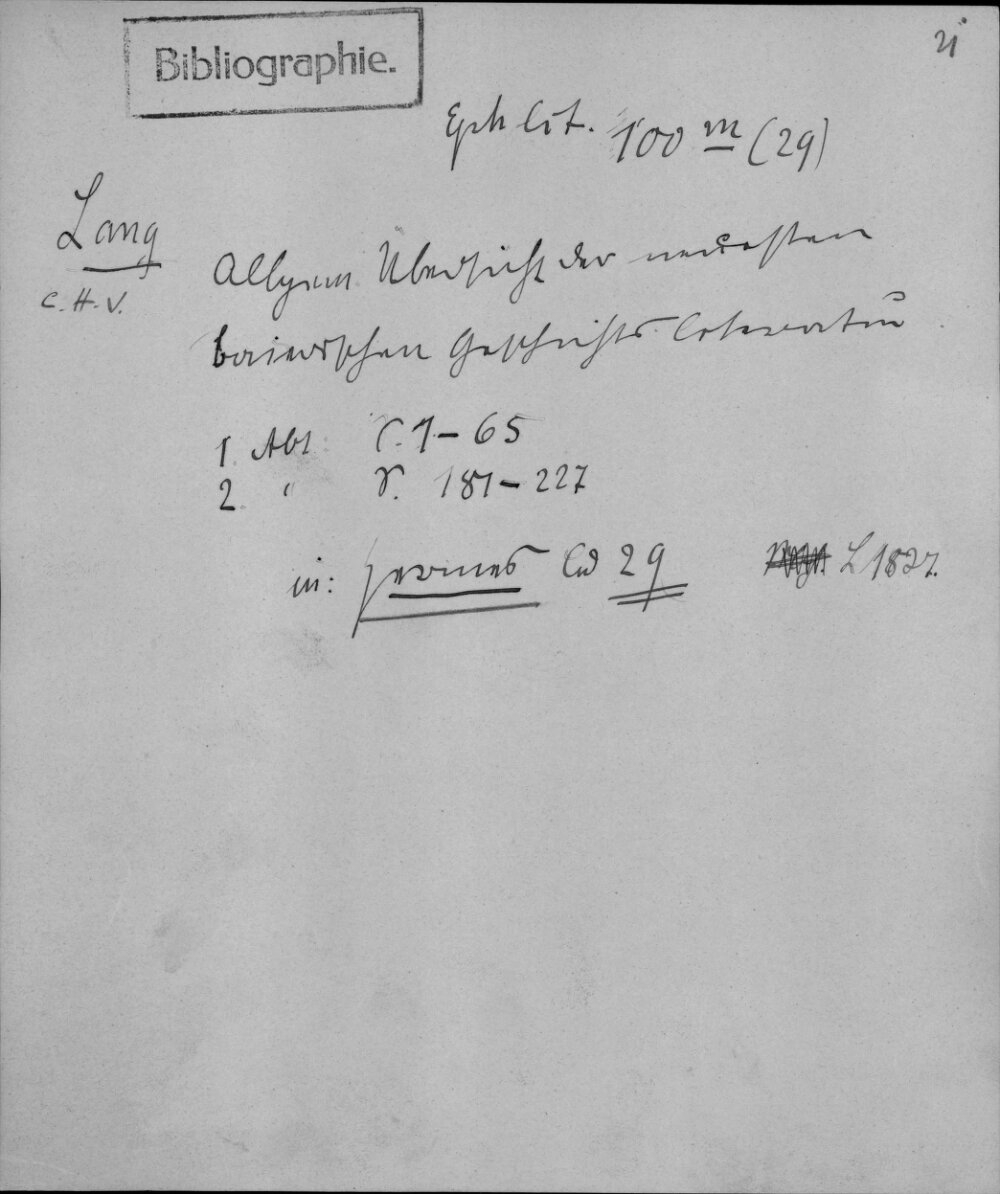 Bibliographie.
Eph lit. 100 m (29)
Lang
C. H. V.
Allgem Übersicht der neuesten
bairischen Geschichts Literatur
1 Abt S. 1-65
2 " S. 181-227
in: Hermes Bd 29 L 1827.